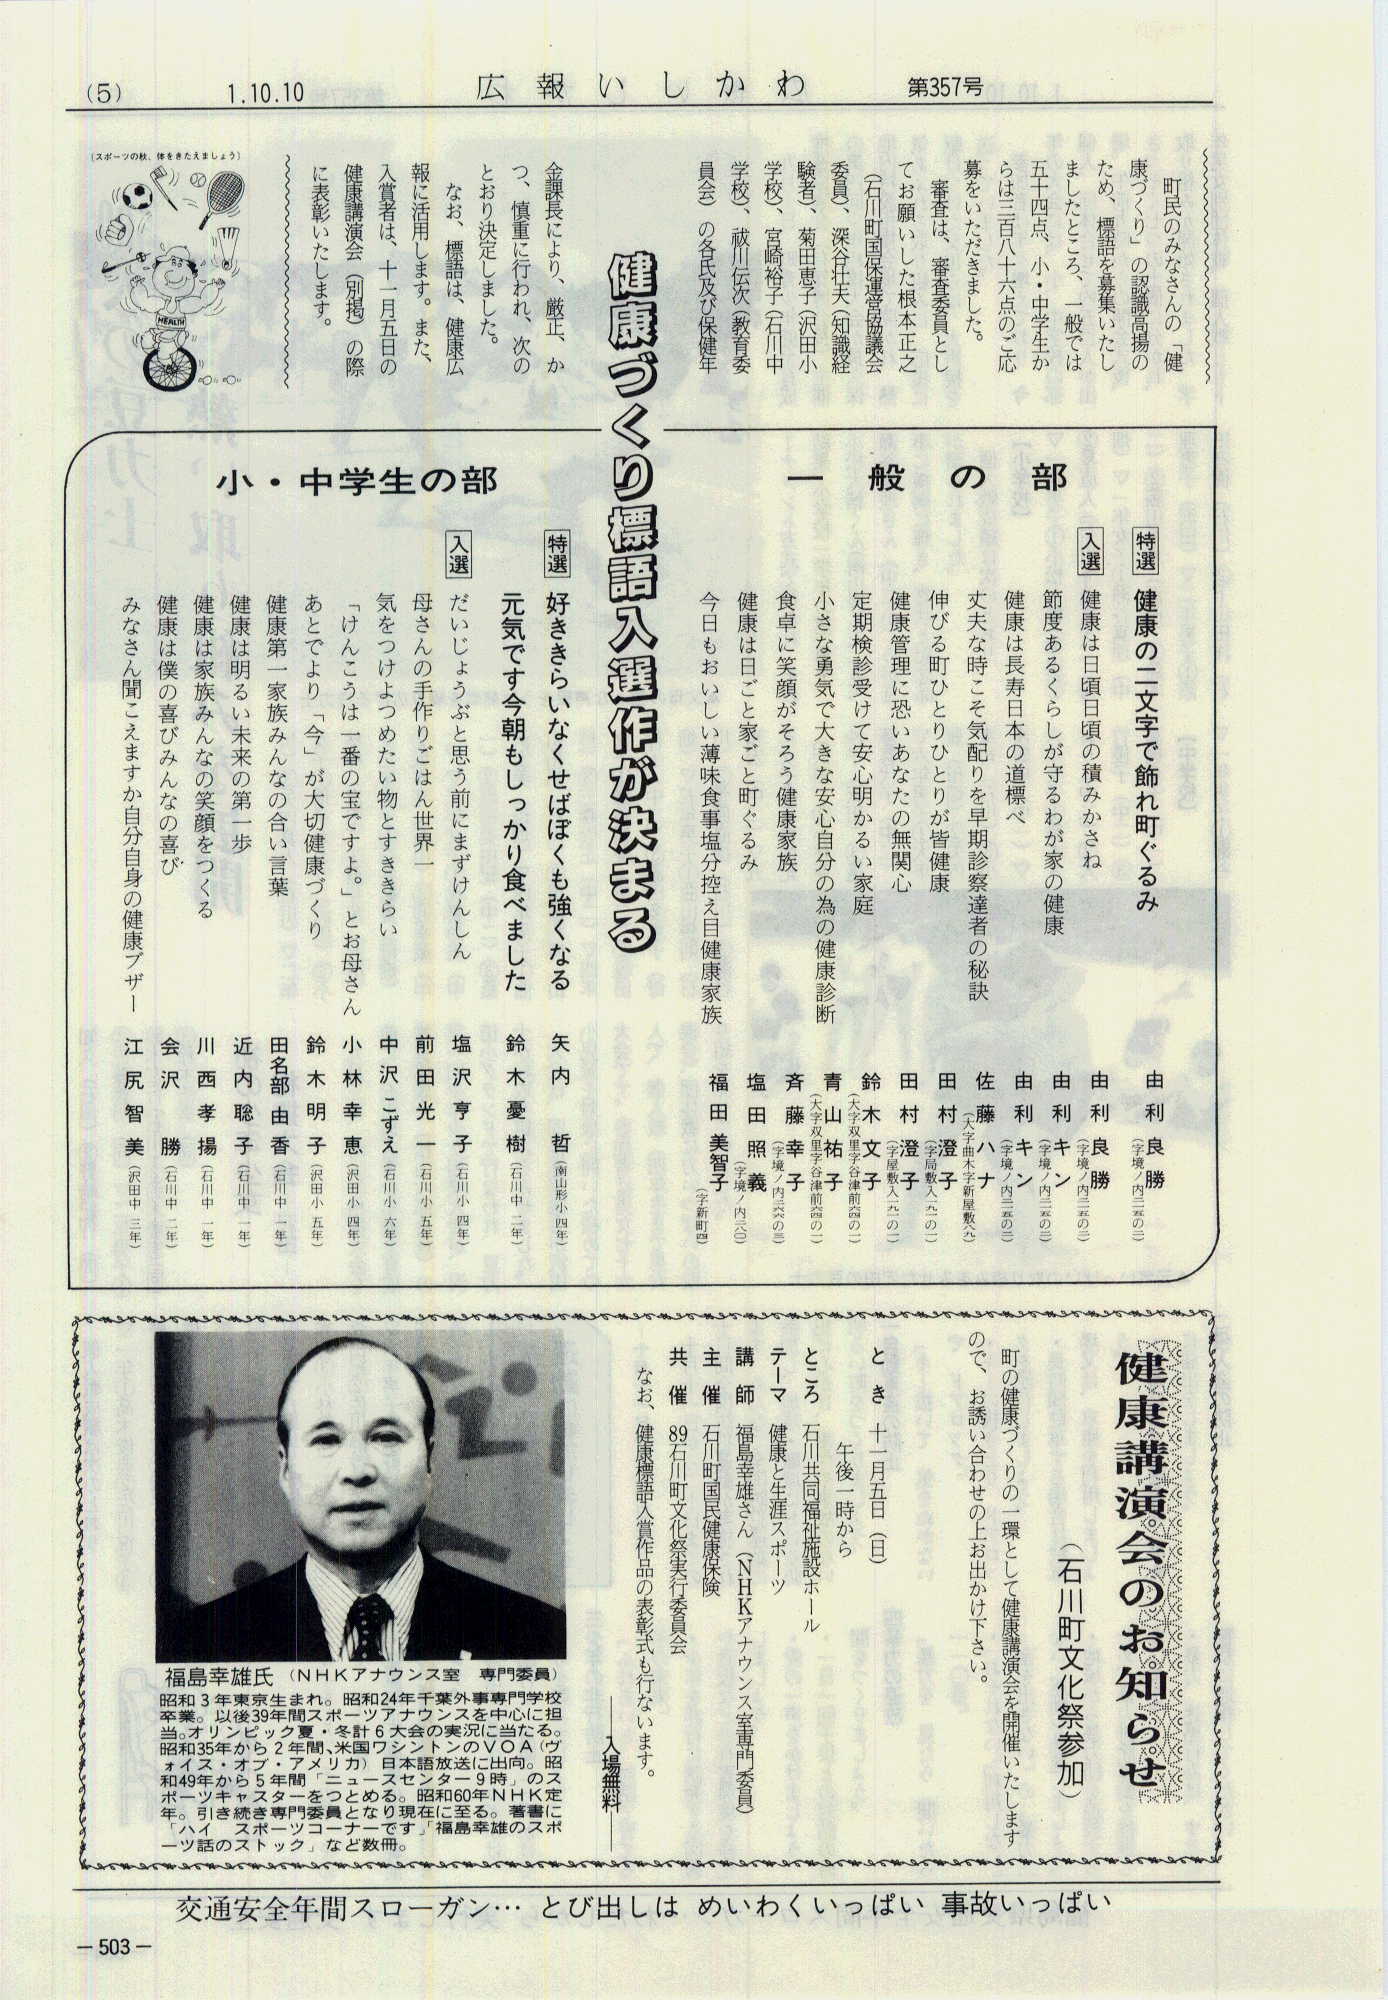 (5)
1.10.10
広報いしかわ
第357号
町民のみなさんの「健
康づくり」の認識高揚の
ため、標語を募集いたし
ましたところ、一般では
五十四点、小・中学生か
らは三百八十六点のご応
募をいただきました。
審査は、審査委員とし
てお願いした根本正之
(石川町国保運営協議会
委員)、深谷壮夫(知識経
験者)、菊田恵子(沢田小
学校)、宮崎裕子(石川中
学校)、祓川伝次(教育委
員会)の各氏及び保健年
金課長により、厳正、か
つ、慎重に行われ、次の
とおり決定しました。
なお、標語は、健康広
報に活用します。また、
入賞者は、十一月五日の
健康講演会(別掲)の際
に表彰いたします。
(スポーツの秋、体をきたえましょう)
HEALTH
健康づくり標語入選作が決まる
一般の部
特選
健康の二文字で飾れ町ぐるみ 由利良勝(字境ノ内二五の二)
入選
健康は日頃日頃の積みかさね 由利良勝(字境ノ内二五の二)
節度あるくらしが守るわが家の健康 由利キン(字境ノ内二五の二)
健康は長寿日本の道標べ 由利キン(字境ノ内二五の二)
丈夫な時こそ気配りを早期診察達者の秘訣 佐藤ハナ(大字曲木字新屋敷八九)
伸びる町ひとりひとりが皆健康 田村澄子(字局敷入九一の一)
健康管理に恐いあなたの無関心 田村澄子(字屋敷入九一の一)
定期検診受けて安心明かるい家庭 鈴木文子(大字双里字谷津前六四の一)
小さな勇気で大きな安心自分の為の健康診断 青山祐子(大字双里字谷津前六四の一)
食卓に笑顔がそろう健康家族 斉藤幸子(字境ノ内二六六の三)
健康は日ごと家ごと町ぐるみ 塩田照義(字境ノ内二八〇)
今日もおいしい薄味食事塩分控え目健康家族 福田美智子(字新町四)
小・中学生の部
特選
好ききらいなくせばぼくも強くなる 矢内哲(南山形小四年)
元気です今朝もしっかり食べました 鈴木憂樹(石川中二年)
入選
だいじょうぶと思う前にまずけんしん 塩沢亨子(石川小四年)
母さんの手作りごはん世界一 前田光一(石川小五年)
気をつけよつめたい物とすききらい 中沢こずえ(石川小六年)
「けんこうは一番の宝ですよ。」とお母さん 小林幸恵(沢田小四年)
あとでより「今」が大切健康づくり 鈴木明子(沢田小五年)
健康第一家族みんなの合い言葉 田名部由香(石川中一年)
健康は明るい未来の第一歩 近内聡子(石川中一年)
健康は家族みんなの笑顔をつくる 川西孝揚(石川中一年)
健康は僕の喜びみんなの喜び 会沢勝(石川中二年)
みなさん聞こえますか自分自身の健康ブザー 江尻智美(沢田中三年)
健康講演会のお知らせ
(石川町文化祭参加)
町の健康づくりの一環として健康講演会を開催いたします
ので、お誘い合わせの上お出かけ下さい。
とき 十一月五日(日)
午後一時から
ところ 石川共同福祉施設ホール
テーマ 健康と生涯スポーツ
講師 福島幸雄さん(NHKアナウンス室専門委員)
主催 石川町国民健康保険
共催 89石川町文化祭実行委員会
なお、健康標語入賞作品の表彰式も行ないます。
――入場無料――
福島幸雄氏(NHKアナウンス室 専門委員)
昭和3年東京生まれ。昭和24年千葉外事専門学校
卒業。以後39年間スポーツアナウンスを中心に担
当。オリンピック夏・冬計6大会の実況に当たる。
昭和35年から2年間、米国ワシントンのVOA(ヴ
ォイス・オブ・アメリカ)日本語放送に出向。昭
和49年から5年間「ニュースセンター9時」のス
ポーツキャスターをつとめる。昭和60年NHK定
年。引き続き専門委員となり現在に至る。著書に
「ハイ スポーツコーナーです」「福島幸雄のスポ
ーツ話のストック」など数冊。
交通安全年間スローガン… とび出しは めいわくいっぱい 事故いっぱい
―503―